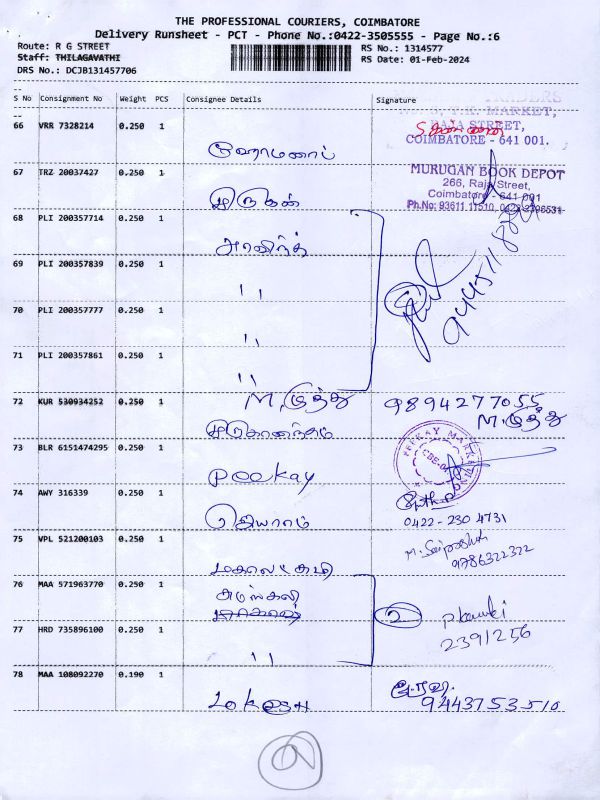 THE PROFESSIONAL COURIERS, COIMBATORE
Delivery Runsheet - PCT - Phone No.:0422-3505555 - Page No.:6
Route: R G STREET
RS No.: 1314577
Staff: THILAGAVATHI
RS Date: 01-Feb-2024
DRS No.: DCJB131457706
S No Consignment No Weight PCS Consignee Details Signature
MARKET,
66 VRR 7328214 0.250 1
RAJA STREET,
COIMBATORE - 641 001.
67 TRZ 20037427 0.250 1 முருகன்
MURUGAN BOOK DEPOT
266, Raja Street,
Coimbatore - 641 001
Ph.No: 93611 11510, 0422 2396531
68 PLI 200357714 0.250 1 அரவிந்த்
69 PLI 200357839 0.250 1 "
70 PLI 200357777 0.250 1 "
71 PLI 200357861 0.250 1 "
M. முத்து
72 KUR 530934252 0.250 1 முருகானந்தம் 9894277055
M. முத்து
73 BLR 6151474295 0.250 1 peekay
PEEKAY MARKETING
CBE-01
74 AWY 316339 0.250 1 ஜெயராம்
0422-230 4731
75 VPL 521200103 0.250 1 மகாலட்சுமி
9786322322
76 MAA 571963770 0.250 1
77 HRD 735896100 0.250 1 "
2
2391256
78 MAA 108092270 0.190 1 Lokesh
9443753510